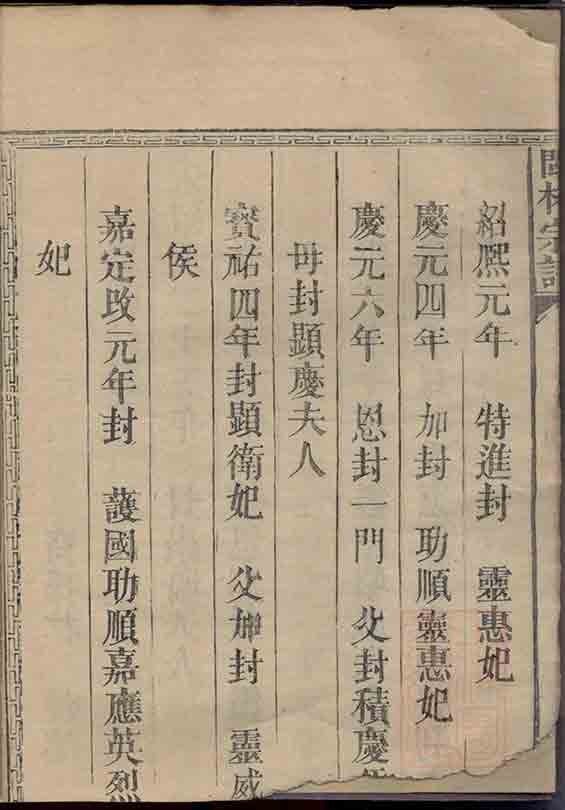 閩林宗譜
紹熈元年 特進封 靈惠妃
慶元四年 加封 功順靈惠妃
慶元六年 恩封一門 父封積慶
母封顕慶夫人
寳祐四年封顕衛妃 父加封 靈威
侯
嘉定改元年封 護國功順嘉應英烈
妃